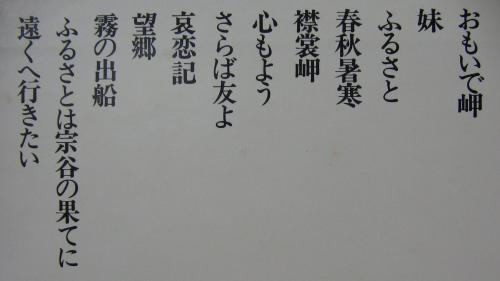 おもいで岬
妹
ふるさと
春秋暑寒
襟裳岬
心もよう
さらば友よ
哀恋記
望郷
霧の出船
ふるさとは宗谷の果てに
遠くへ行きたい